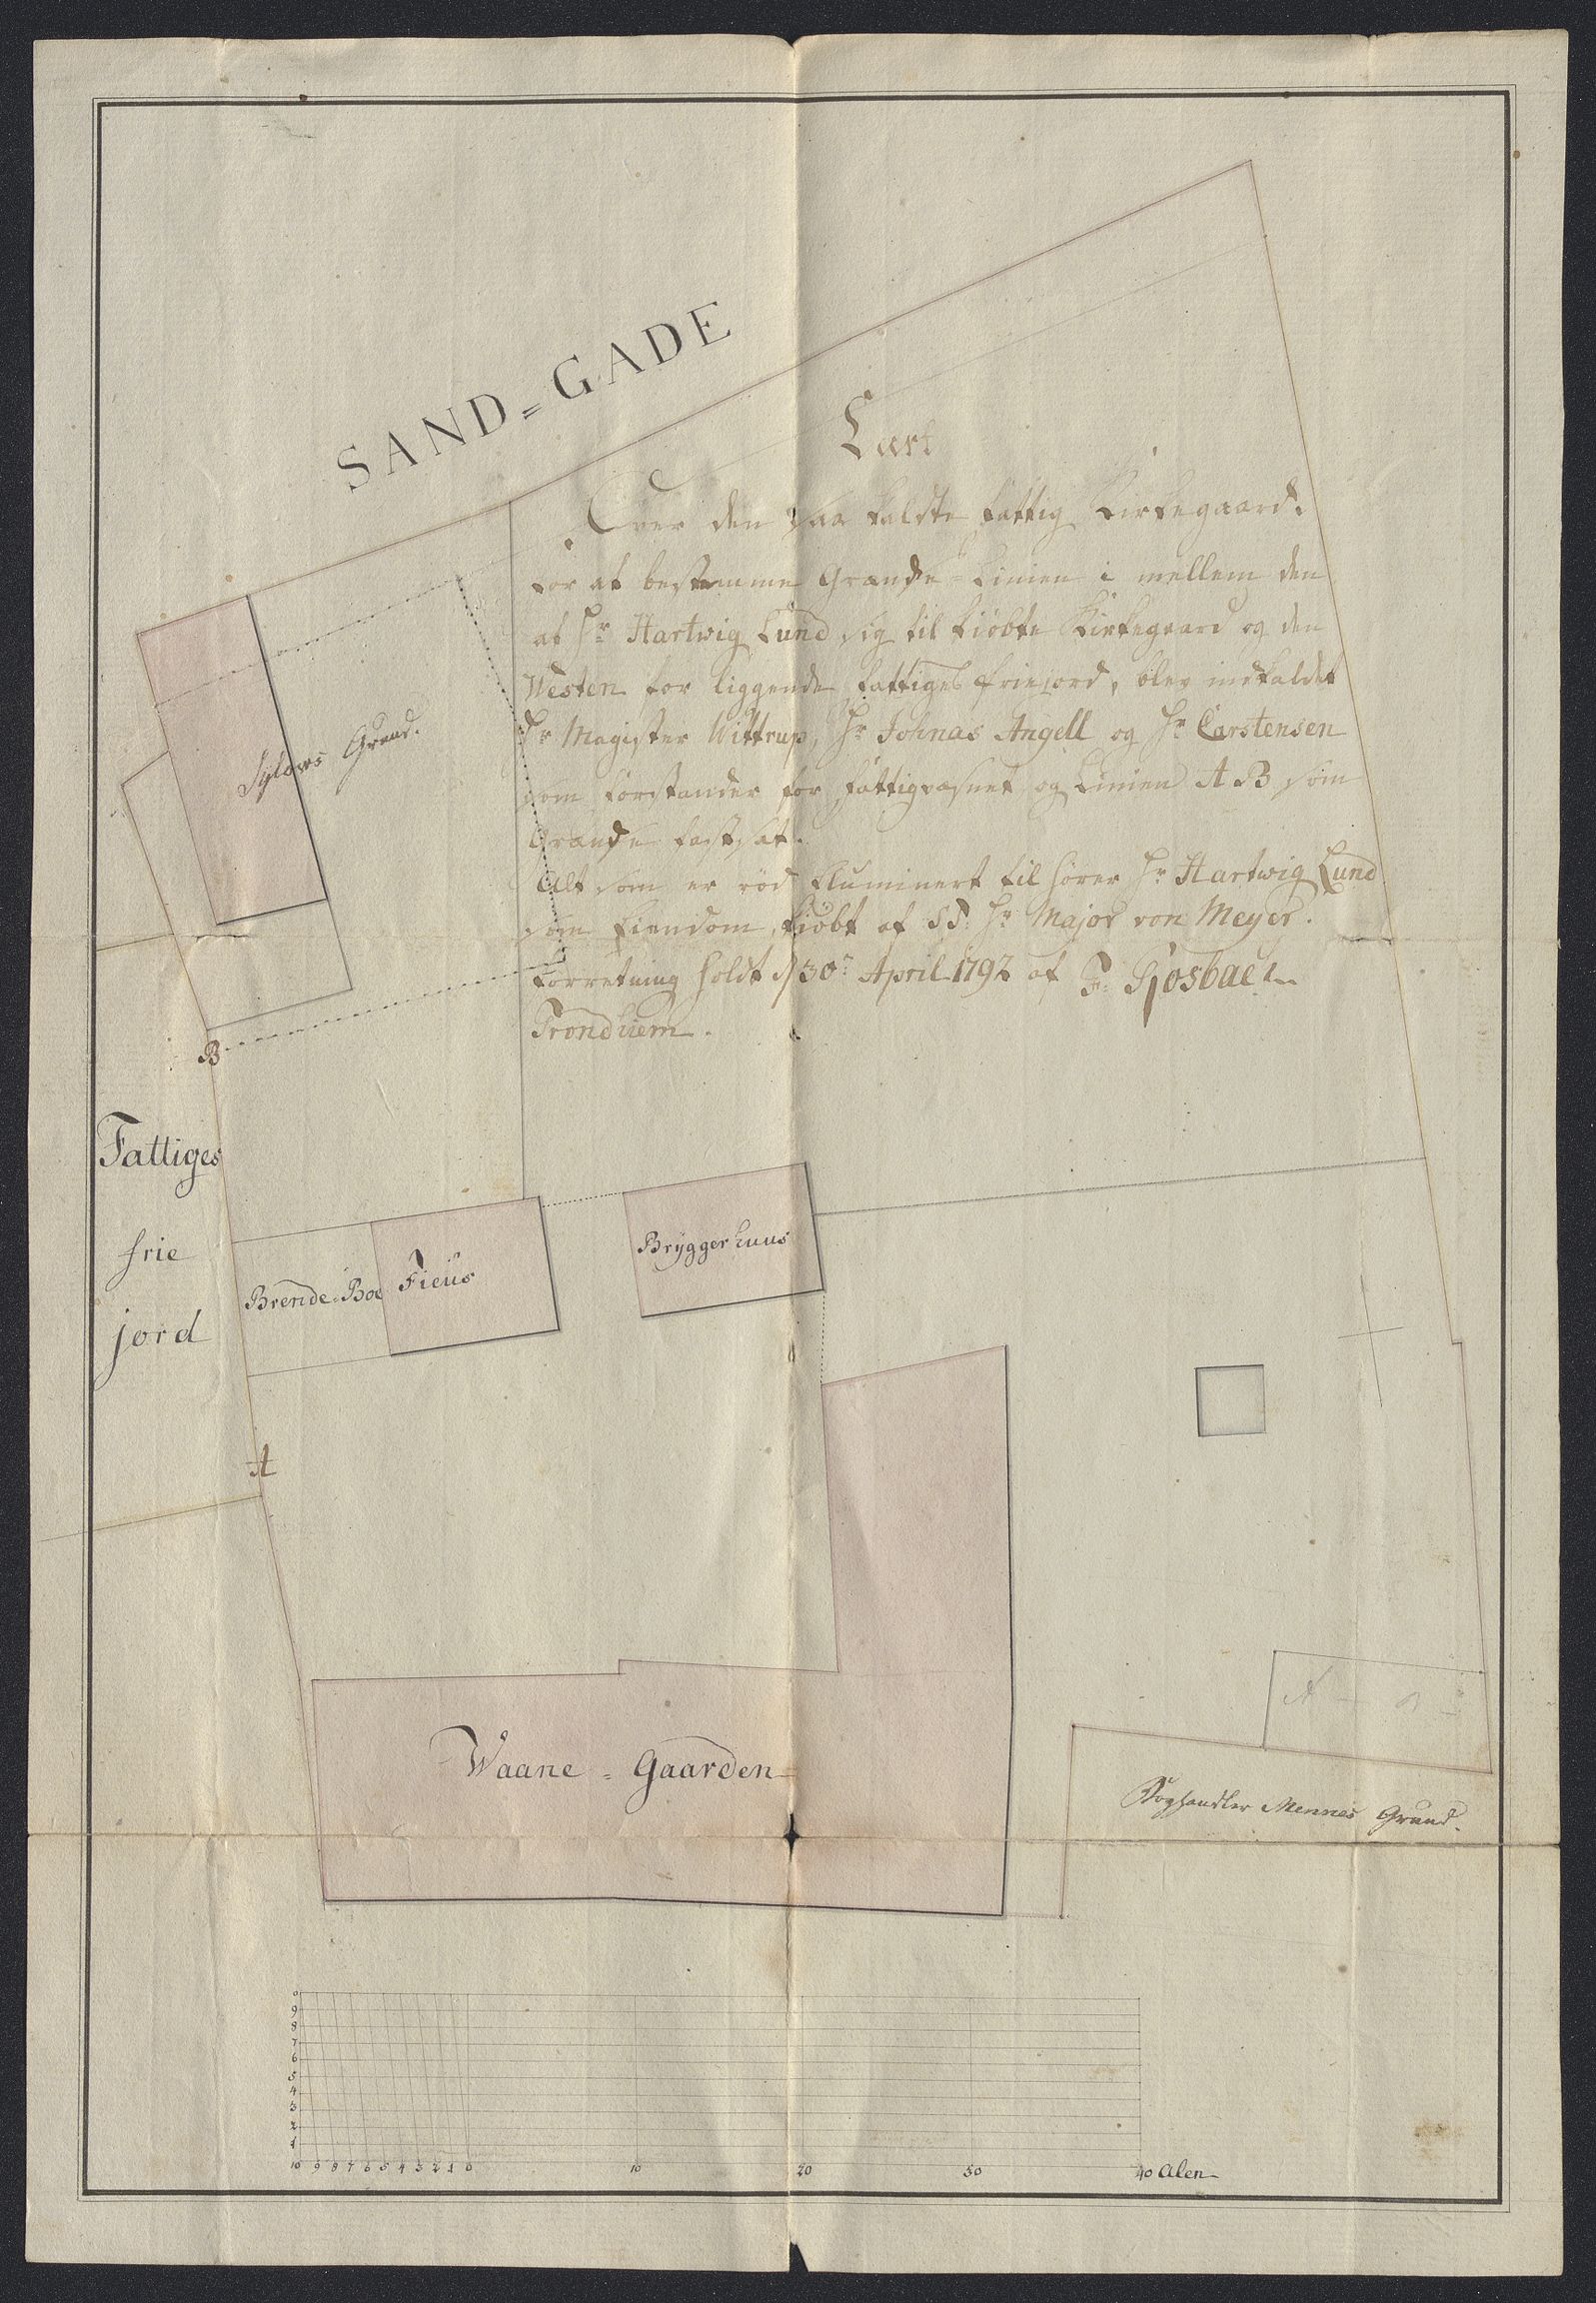 SAND=GADE
Cart
Over den saa kaldte fattig Kirkegaard.
for at bestemme Grændse=Linien i mellem den
af Hr Hartwig Lund sig til kiöbte Kirkegaard og den
Westen for liggende fattiges friejord, blev indkaldet
Hr Magister Wittrup, Hr Johnas Angell og Hr Carstensen
som forstander for fattigvæsnet og Linien A B som
Grændse fastsat.
Alt som er röd Eluminert til hörer Hr Hartwig Lund
som Eiendom kiöbt af ST. Hr Major von Meyer.
Forretning holdt d 30te April 1792 af F.
Trondhiem.
Sylows Grund.
B
Fattiges
frie
jord
Brende=Boe
Fieüs
Bryggerhuus
A
Waane=Gaarden
A
Boghandler Mennes Grund.
0
9
8
7
6
5
4
3
2
1
10 9 8 7 6 5 4 3 2 1 0 10 20 30 40 Alen